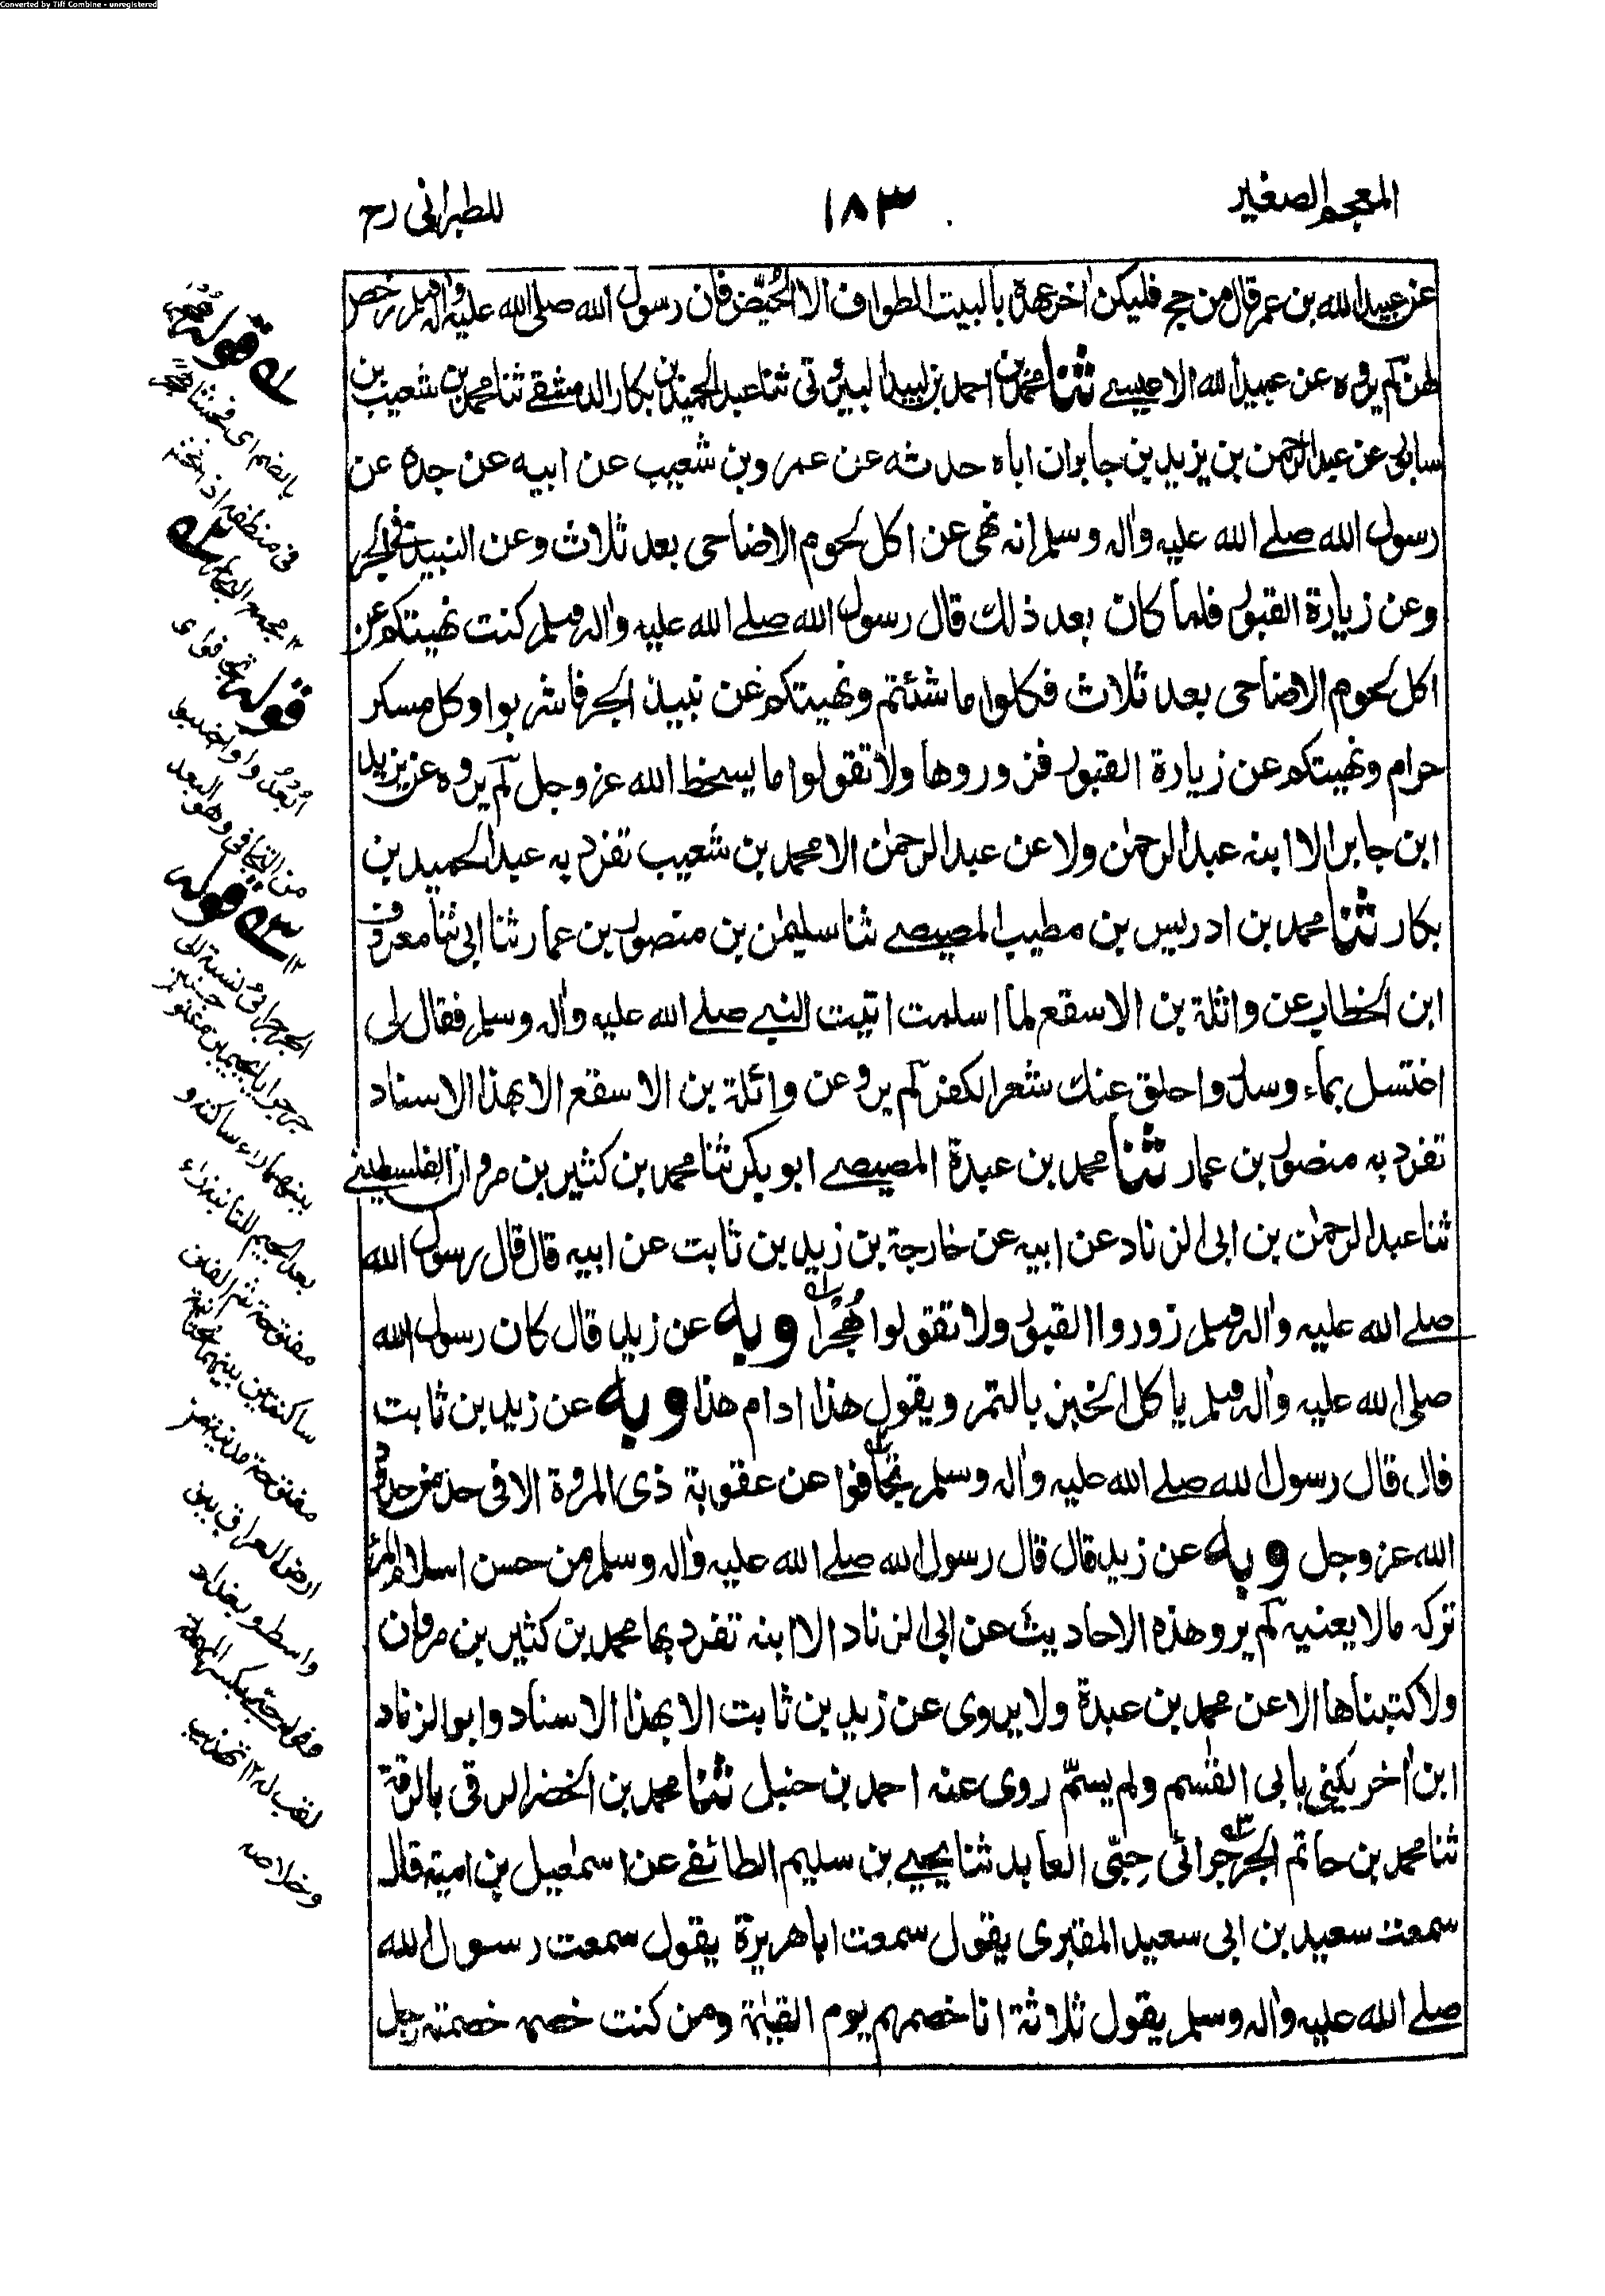 Converted by Tiff Combine - unregistered
المعجم الصغير ١٨٣ للطبرانی رح
عن عبيد الله بن عمر قال من حج فليكن اٰخر عهده بالبيت الطواف الا الحُيَّض فان رسول الله صلى الله عليه واٰله وسلم رخص
لهن لم يروه عن عبيد الله الا عيسے ثنا محمد بن احمد بن لبيد البيروتى ثنا عبد الحميد بن بكار الدمشقے ثنا محمد بن شعيب بن
سابور عن عبد الرحمن بن يزيد بن جابر ان اباه حدثه عن عمرو بن شعيب عن ابيه عن جده عن
رسول الله صلے الله عليه واٰله وسلم انه نهى عن اكل لحوم الاضاحى بعد ثلاث وعن النبيذ فى الجر
وعن زيارة القبور فلما كان بعد ذلك قال رسول الله صلے الله عليه واٰله وسلم كنت نهيتكم عن
اكل لحوم الاضاحى بعد ثلاث فكلوا ما شئتم ونهيتكم عن نبيذ الجر فاشربوا وكل مسكر
حرام ونهيتكم عن زيارة القبور فزوروها ولا تقولوا ما يسخط الله عز وجل لم يروه عن يزيد
ابن جابر الا ابنه عبد الرحمٰن ولا عن عبد الرحمٰن الا محمد بن شعيب تفرد به عبد الحميد بن
بكار ثنا محمد بن ادريس بن مطيب المصيصے ثنا سليمٰن بن منصور بن عمار ثنا ابى ثنا معروف
ابن الخطاب عن واثلة بن الاسقع لما اسلمت اتيت النبے صلے الله عليه واٰله وسلم فقال لى
اغتسل بماء وسدر واحلق عنك شعر الكفر لم يرو عن واثلة بن الاسقع الا بهذا الاسناد
تفرد به منصور بن عمار ثنا محمد بن عبدة المصيصے ابو بكر ثنا محمد بن كثير بن مروان الفلسطينے
ثنا عبد الرحمٰن بن ابى الزناد عن ابيه عن خارجة بن زيد بن ثابت عن ابيه قال قال رسول الله
صلے الله عليه واٰله وسلم زوروا القبور ولا تقولوا هُجْرا وبه عن زيد قال كان رسول الله
صلى الله عليه واٰله وسلم ياكل الخبز بالتمر ويقول هذا ادام هذا وبه عن زيد بن ثابت
قال قال رسول الله صلے الله عليه واٰله وسلم تجافوا عن عقوبة ذى المروة الا فى حد من حدود
الله عز وجل وبه عن زيد قال قال رسول الله صلے الله عليه واٰله وسلم من حسن اسلام المرء
تركه مالا يعنيه لم يرو هذه الاحاديث عن ابى الزناد الا ابنه تفرد بها محمد بن كثير بن مروان
ولا كتبناها الا عن محمد بن عبدة ولا يروى عن زيد بن ثابت الا بهذا الاسناد وابو الزناد
ابن اٰخر يكنى بابى القٰسم ولم يسمّ روى عنه احمد بن حنبل ثنا محمد بن الخضر الرقى بالرقة
ثنا محمد بن حاتم الجرجرائى حِبّى العابد ثنا يحيے بن سليم الطائفے عن اسمٰعيل بن امية قال
سمعت سعيد بن ابى سعيد المقبرى يقول سمعت ابا هريرة يقول سمعت رسول الله
صلے الله عليه واٰله وسلم يقول ثلاثة انا خصمهم يوم القيٰمة ومن كنت خصمه خصمته رجل
قوله هُجرا
بالضم اى فحشا
فى منطقه اذا افحش
١٢ مجمع البحار
قوله تجافوا اى
ابعُدُوا
من التجافى وهو البعد
١٢ قوله
الجرجرائى نسبة الى
جرجرايا بجيمين
بينهما راء ساكنة و
بعد الجيم الثانية راء
مفتوحة ثم الف
مفتوحة مدينة من
ارض العراق بين
واسط وبغداد
وقوله حبى بكسر المهملة
لقب له ١٢ تهذيب
وخلاصه